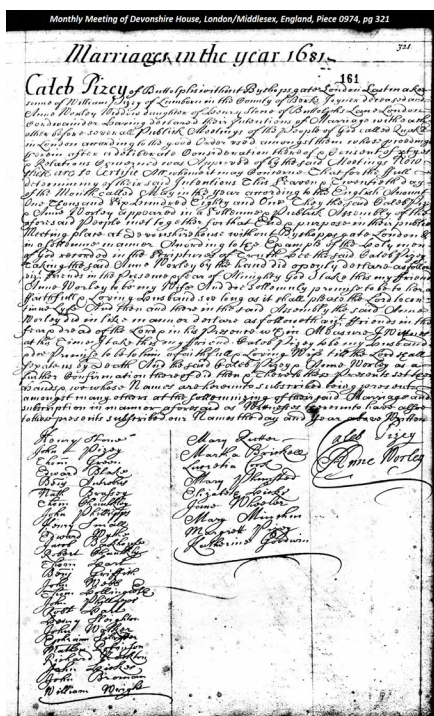 Monthly Meeting of Devonshire House, London/Middlesex, England, Piece 0974, pg 321
321
Marriages in the year 1681
161
Caleb Pizey of Buttolphs without Byshopsgate London Last maker
sonne of William Pizey of Lamborn in the County of Berks Joyner deceased and
Anne Worley Widdow daughter of Henry Stone of Buttolphs Lane London
Cordwainder having declared their Intentions of Marriage with each
other before severall Publick Meetings of the People of God called Quakers
in London according to the good Order used amongst them whose proceedings
therein after a deliberate Consideration thereof & Consent of partyes
& Relations Concerned was Approved of by the said Meetings Now
these are to Certifie All whom it may Concerne That for the full
determining of their said Intentions This Eleaven & Twentieth day
of the Month called May in the year according to the English Account
One Thousand six hundred Eighty and One They the said Caleb Pizey
& Anne Worley appeared in a Sollemne & Publick Assembly of the
aforesaid People mett together for that End & purpose in their publick
Meeting Place at Devonshire house without Byshopsgate London
in a sollemne manner According to the Example of the Holy men
of God recorded in the Scriptures of Truth hee the said Caleb Pizey
Taking the said Anne Worley by the hand did openly declare as followeth
Friends in the Presence & fear of Almighty God I take this my friend
Anne Worley to be my Wife And doe sollemnly promise to be to her a
faithfull & Loving husband soe long as it shall please the Lord to con-
tinue Life And then and there in the said Assembly the said Anne
Worley did in like manner declare as followeth Friends in the
fear & dread of the Lord in his Presence
at this Time I take this my friend Caleb Pizey to be my husband
& doe Promise to be to him a faithfull & Loving Wife till the Lord shall
separate us by Death And the said Caleb Pizey & Anne Worley as a
further Confirmation thereof did then & There to these Presents set their
hands & wee whose Names are hereunto subscribed being present
amongst many others at the sollemnizing of their said Marriage and
subscription in manner aforesaid as Witnesses hereunto have allsoe
to these presents subscribed our Names the day and Year above Written
Henry Stone
John Pizey
Thom: Green
Edward Blake
Nath: Brasey
John Phillipps
Henry Small
Robert
Thom: Hart
Benj: Griffith
John Webb
Thom:
John
Robt Halls
Henry
John
Ephraim
Mathew
Richard
John
John Broman
William Wright
Mary
Martha
Lucretia Cook
Mary
Elizabeth
Jane Wheeler
Mary Minchin
Margrett Pizey
Katherine Goodwin
Caleb Pizey
Anne Worley